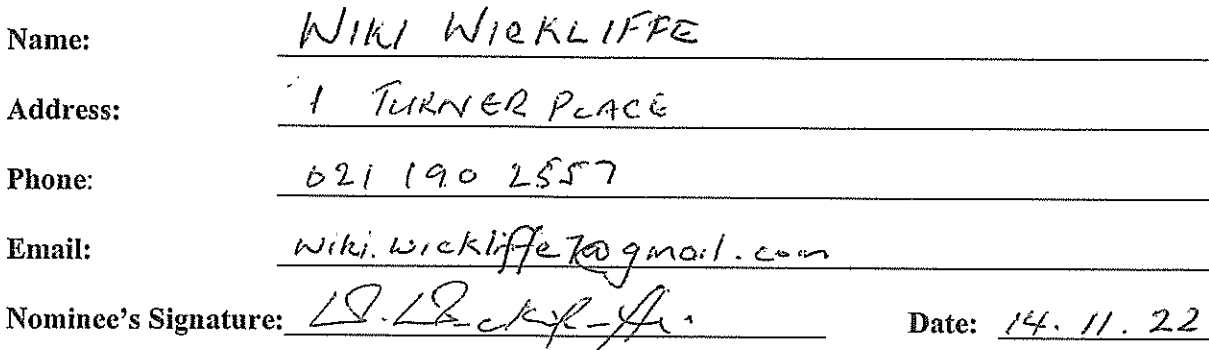 Name: WIKI WICKLIFFE
Address: 1 TURNER PLACE
Phone: 021 190 2557
Email: wiki.wickliffe7@gmail.com
Nominee's Signature: Date: 14.11.22